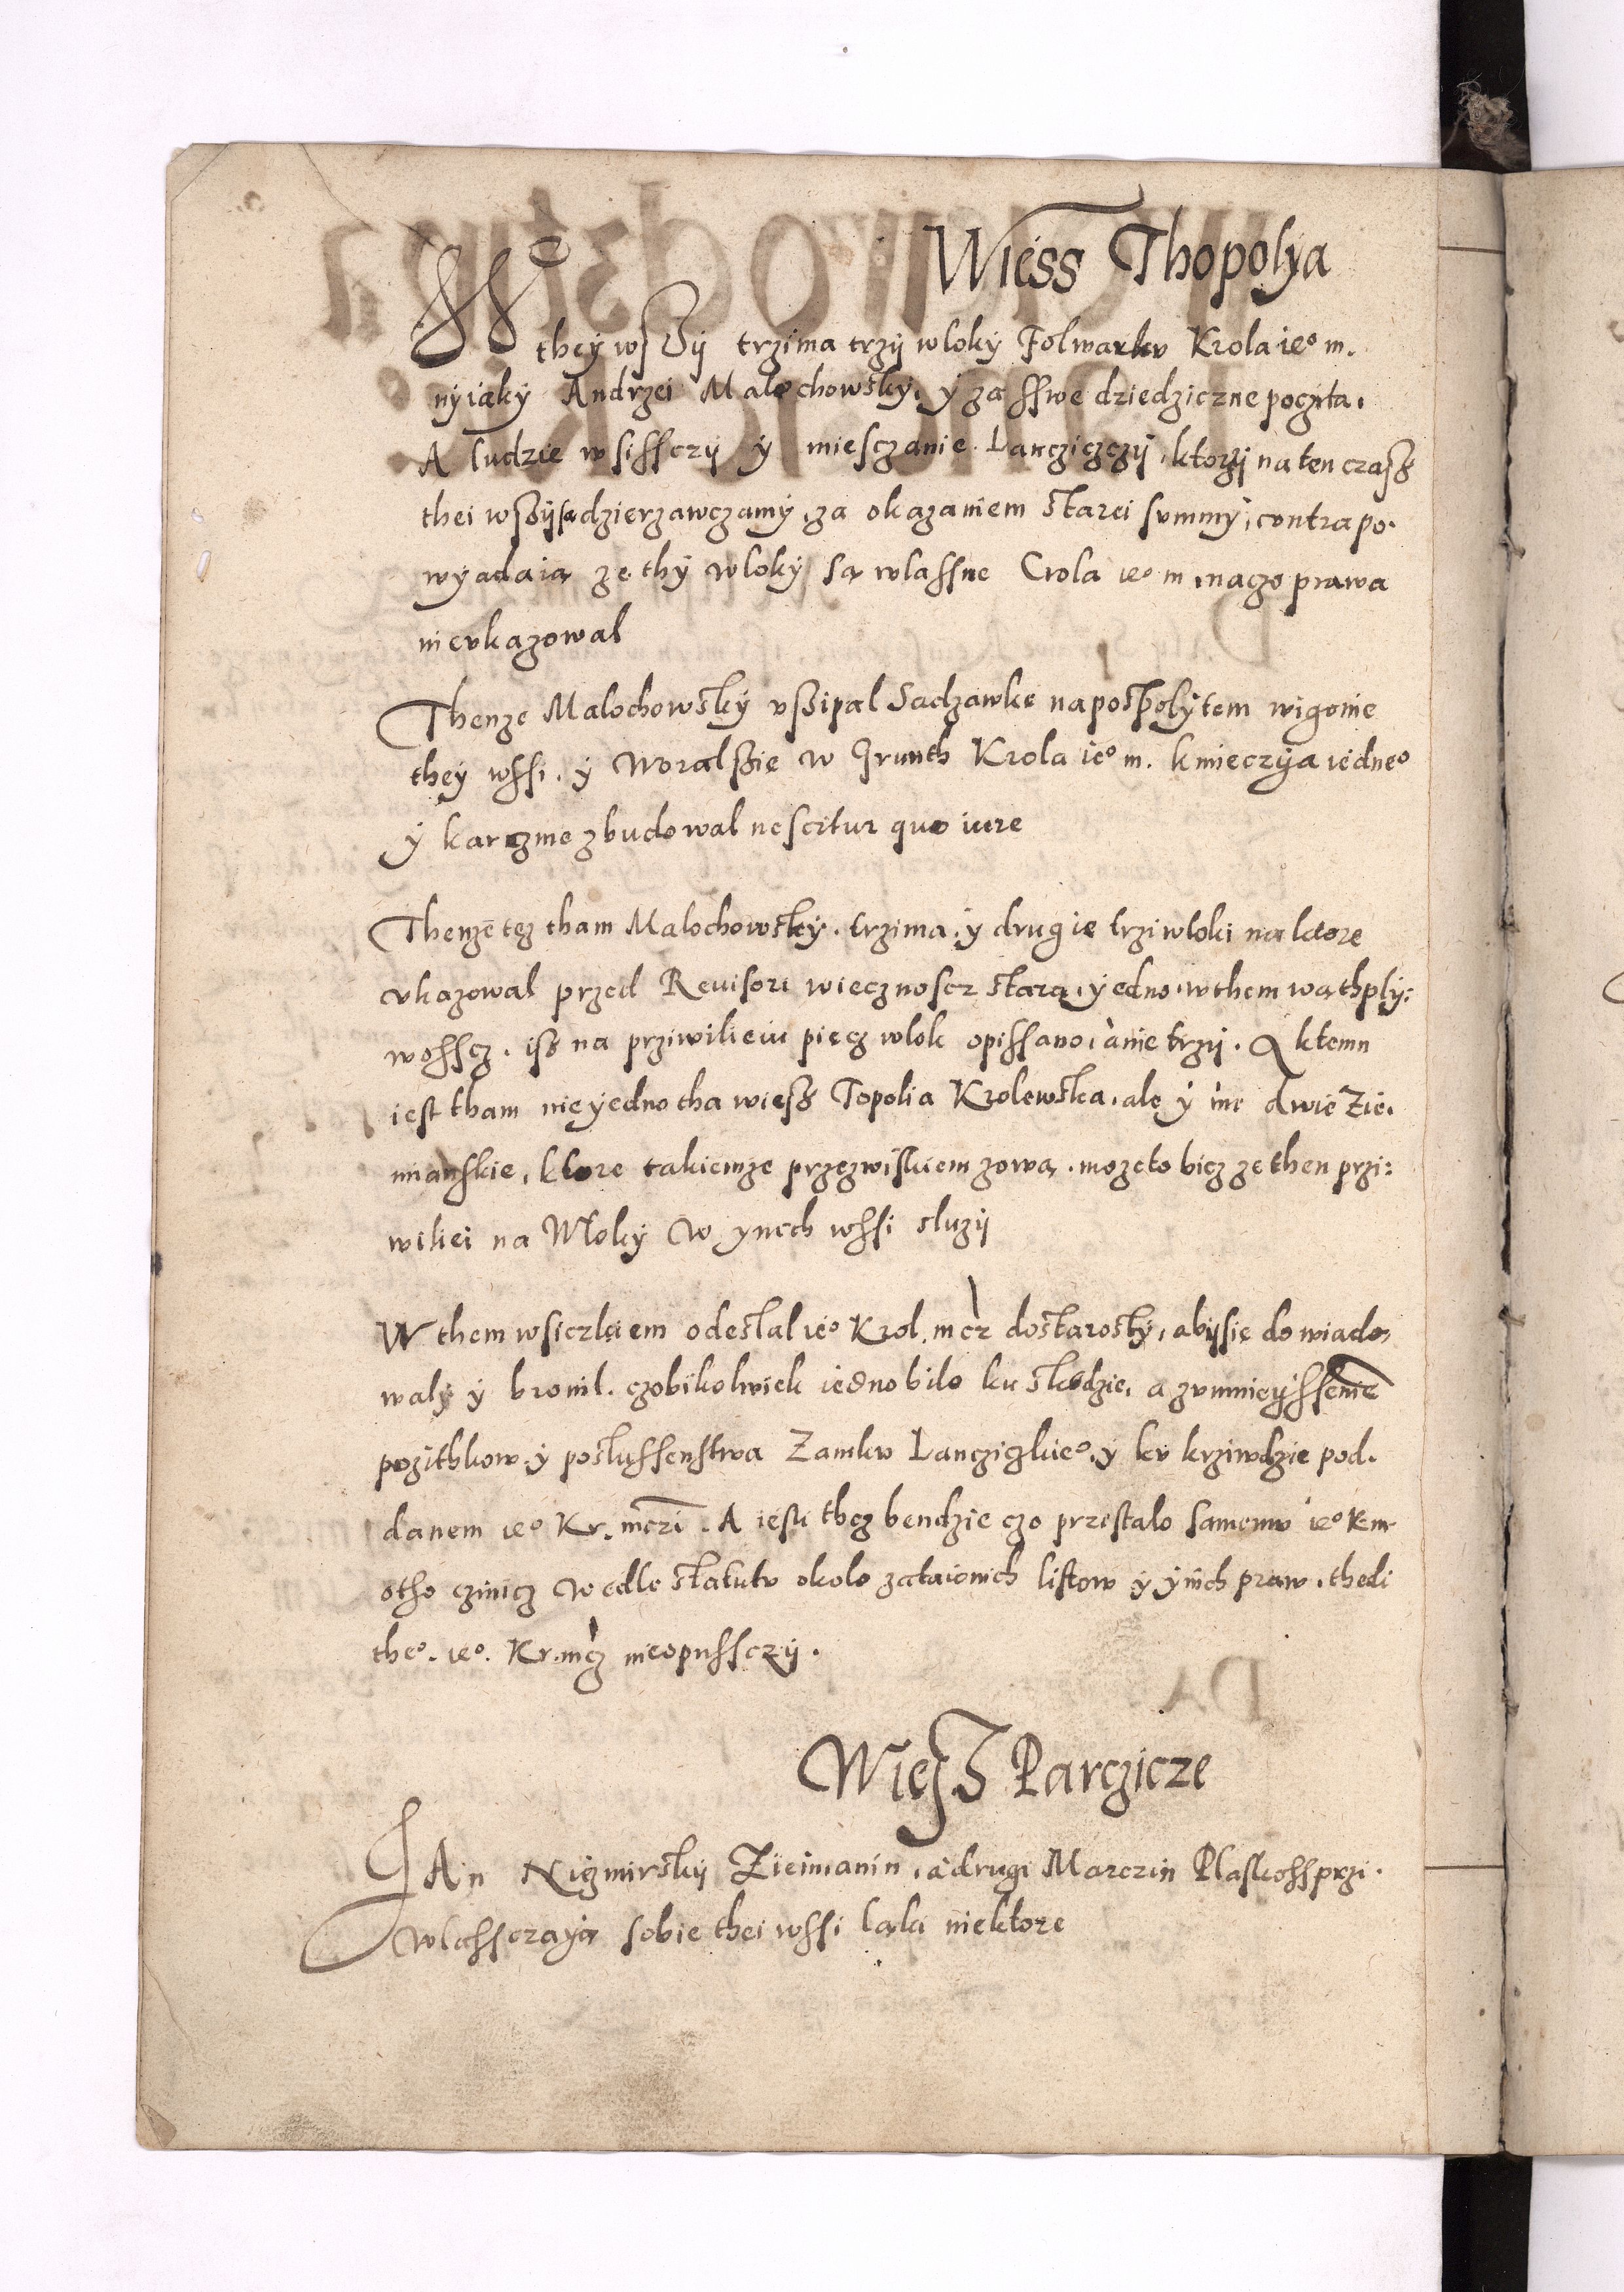 Wiess Thopolya
W they wsßÿ trzima trzÿ wloky Folwarku Krola ieº m.
nyiaky Andrzei Malochowsky, y za sswe dziedziczne poczita.
A ludzie wsissczÿ y miesczanie Lancziczczÿ, ktorzÿ na ten czasß
thei wsßÿ są dzierzawczamy, za okazaniem starei summy, contra po.
wyadaią ze thy wloky są wlassne Crola ieº m, na czo prawa
nie vkazowal
Thenze Malochowsky vßipal Sadzawke na pospolytem wigonie
they wssi. y Woralßie w Grunth Krola ieº m. kmieczÿa iedneº
y karczme zbudowal nescitur quo iure
Thenze tez tham Malochowsky. trzima. y drugie trzi wloki na ktore
vkazowal przed Reuisori wiecznoscz starą, yedno wthem wąthply:
wosscz. iß na przivilieiu piecz wlok opissano, a nie trzÿ. A ktemu
iest tham nie yedno tha wiesß Topolia Krolewska, ale y ine dwie Zie.
mianskie, ktore takiemze przezwiskiem zową. moze to bicz ze then przi:
wiliei na Wloky w ynech wssi sluzÿ
W them wsiczkiem odeslal ieº Krol. mcz do starosty, abÿ sie dowiado,
waly y bronil. czobikolwiek iedno bilo ku skodzie, a zumnieyssenie
pozithkow. y poslussenstwa Zamku Lancziczkieº. y ku krziwdzie pod.
danem ieº Kr. mczi. A iesli thez bendzie czo przestalo samemu ieº Km
otho czinicz wedle statutu okolo zataionich listow y ynich praw. thedi
theº. ieº. Kr. mcz nieopussczÿ.
Wiesß Parczicze
JAn Nizmirskÿ Zieimanin, a drugi Marczin Plaskoss przi.
wlassczayą sobie thei wssi ląki niektore